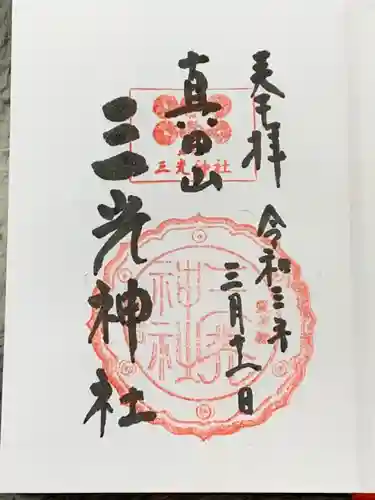 奉拝
令和三年
三月十八日
真田山
三光神社
三光神社
三光
神社